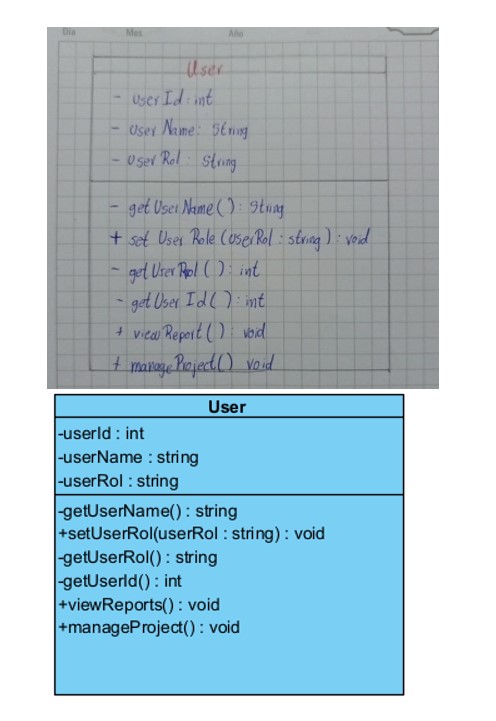 Dia Mes Año
User
- userId: int
- userName: String
- userRol: String
- getUserName(): String
+ set UserRole (userRol: string): void
- getUserRol(): int
- getUserId(): int
+ viewReport(): void
+ manageProject() void
User
-userId : int
-userName : string
-userRol : string
-getUserName() : string
+setUserRol(userRol : string) : void
-getUserRol() : string
-getUserId() : int
+viewReports() : void
+manageProject() : void